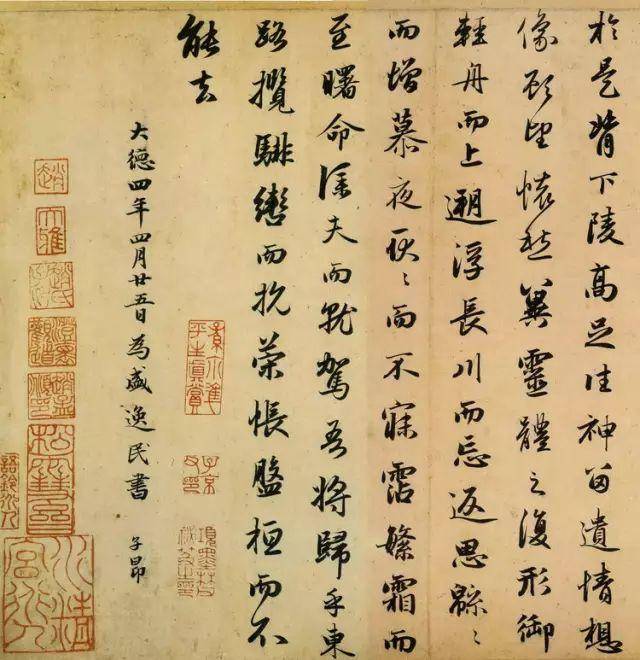 於是背下陵高足往神留遺情想
像顧望懷愁冀靈體之復形御
輕舟而上遡浮長川而忘返思緜〻
而增慕夜耿〻而不寐霑繁霜而
至曙命僕夫而就駕吾將歸乎東
路攬騑轡而抗策悵盤桓而不
能去
大德四年四月廿五日為盛逸民書 子昂
平生真賞
子京父印
項墨林
趙
大雅